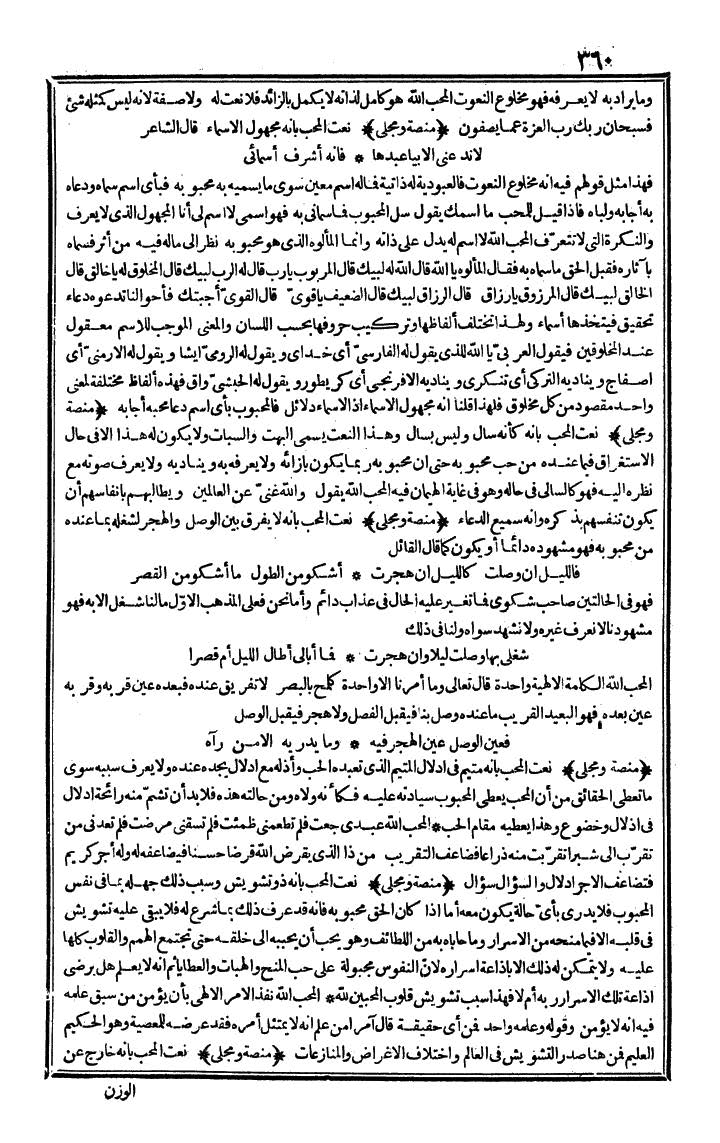 ٣٦٠
وما يراد به لا يعرفه فهو مخلوع النعوت المحب الله هو كامل لذاته لا يكمل بالزائد فلا نعت له ولا صفة لانه ليس كمثله شئ
فسبحان ربك رب العزة عما يصفون ﴿منصة ومجلى﴾ نعت المحب بانه مجهول الاسماء قال الشاعر
لا تدعنى الا بيا عبدها * فانه أشرف أسمائى
فهذا مثل قولهم فيه انه مخلوع النعوت فالعبودية له ذاتية فاله اسم معين سوى ما يسميه به محبوبه فبأى اسم سماه ودعاه
به أجابه ولباه فاذا قيل للمحب ما اسمك يقول سل المحبوب فما سمانى به فهو اسمى لا اسم لى أنا المجهول الذى لا يعرف
والنكرة التى لا تتعرّف المحب الله لا اسم له يدل على ذاته وانما المألوه الذى هو محبوبه نظر الى ماله فيه من أثر فسماه
با ثاره فقبل الحق ما سماه به فقال المألوه يا الله قال الله له لبيك قال المربوب يارب قال له الرب لبيك قال المخلوق له ياخالق قال
الخالق لبيك قال المرزوق يارزاق قال الرزاق لبيك قال الضعيف ياقوىّ قال القوىّ أجبتك فأحوالنا تدعوه دعاء
تحقيق فيتخذها أسماء ولهذا تختلف ألفاظها وتركيب حروفها بحسب اللسان والمعنى الموجب للاسم معقول
عند المخلوقين فيقول العربىّ يا الله للذى يقول له الفارسىّ أى خداى ويقول له الرومىّ ايشا ويقول له الارمنىّ أى
اصفاج ويناديه التركىّ أى تنكرى ويناديه الافرنجى أى كريطور ويقول له الحبشىّ واق فهذه ألفاظ مختلفة لمعنى
واحد مقصود من كل مخلوق فلهذا قلنا انه مجهول الاسماء اذ الاسماء دلائل فالمحبوب بأى اسم دعا محبه أجابه ﴿منصة
ومجلى﴾ نعت المحب بانه كأنه سال وليس بسال وهذا النعت يسمى البهت والسبات ولا يكون له هذا الا فى حال
الاستغراق فيما عنده من حب محبوبه حتى ان محبوبه ربما يكون بازائه ولا يعرفه به ويناديه ولا يعرف صوته مع
نظره اليه فهو كالسالى فى حاله وهو فى غاية الهيمان فيه المحب الله يقول والله غنىّ عن العالمين ويطالبهم بانفاسهم أن
يكون تنفسهم بذكره وانه سميع الدعاء ﴿منصة ومجلى﴾ نعت المحب بانه لا يفرق بين الوصل والهجر لشغله بما عنده
من محبوبه فهو مشهوده دائما أو يكون كما قال القائل
فالليل ان وصلت كالليل ان هجرت * أشكو من الطول ما أشكو من القصر
فهو فى الحالتين صاحب شكوى فما تغير عليه الحال فى عذاب دائم وأما نحن فعلى المذهب الاوّل مالنا شغل الا به فهو
مشهودنا لا نعرف غيره ولا نشهد سواه ولنا فى ذلك
شغلى بها وصلت ليلا وان هجرت * فما أبالى أطال الليل أم قصرا
المحب الله الكلمة الالهية واحدة قال تعالى وما أمرنا الا واحدة كلمح بالبصر لا تفريق عنده فبعده عين قربه وقربه
عين بعده فهو البعيد القريب ما عنده وصل بنا فيقبل الفصل ولا هجر فيقبل الوصل
فعين الوصل عين الهجر فيه * وما يدريه الا من رآه
﴿منصة ومجلى﴾ نعت المحب بانه متيم فى ادلال المتيم الذى تعبده الحب وأذله مع ادلال يجده عنده ولا يعرف سببه سوى
ما تعطى الحقائق من أن المحب يعطى المحبوب سيادته عليه فكأنه ولاه ومن حالته هذه فلا بد أن تشمّ منه رائحة ادلال
فى اذلال وخضوع وهذا يعطيه مقام الحب * المحب الله عبدى جعت فلم تطعمنى ظمئت فلم تسقنى مرضت فلم تعدنى من
تقرّب الى شبرا تقرّبت منه ذراعا فضاعف التقريب من ذا الذى يقرض الله قرضا حسنا فيضاعفه له وله أجر كريم
فتضاعف الاجر ادلال والسؤال سؤال ﴿منصة ومجلى﴾ نعت المحب بانه ذو تشويش وسبب ذلك جهله بما فى نفس
المحبوب فلا يدرى بأى حالة يكون معه أما اذا كان الحق محبوبه فانه قد عرف ذلك بما شرع له فلا يبقى عليه تشويش
فى قلبه الا فيما منحه من الاسرار وما حاباه به من اللطائف وهو يحب أن يحببه الى خلقه حتى تجتمع الهمم والقلوب كلها
عليه ولا يتمكن له ذلك الا باذاعة اسراره لانّ النفوس مجبولة على حب المنح والهبات والعطايا ثم انه لا يعلم هل يرضى
اذاعة تلك الاسرار ربه أم لا فهذا سبب تشويش قلوب المحبين لله * المحب الله نفذ الامر الالهى بأن يؤمن من سبق علمه
فيه انه لا يؤمن وقوله وعلمه واحد فمن أى حقيقة قال آمر امن علم انه لا يمتثل أمره فقد عرضه للمعصية وهو الحكيم
العليم فمن هنا صدر التشويش فى العالم واختلاف الاغراض والمنازعات ﴿منصة ومجلى﴾ نعت المحب بانه خارج عن
الوزن